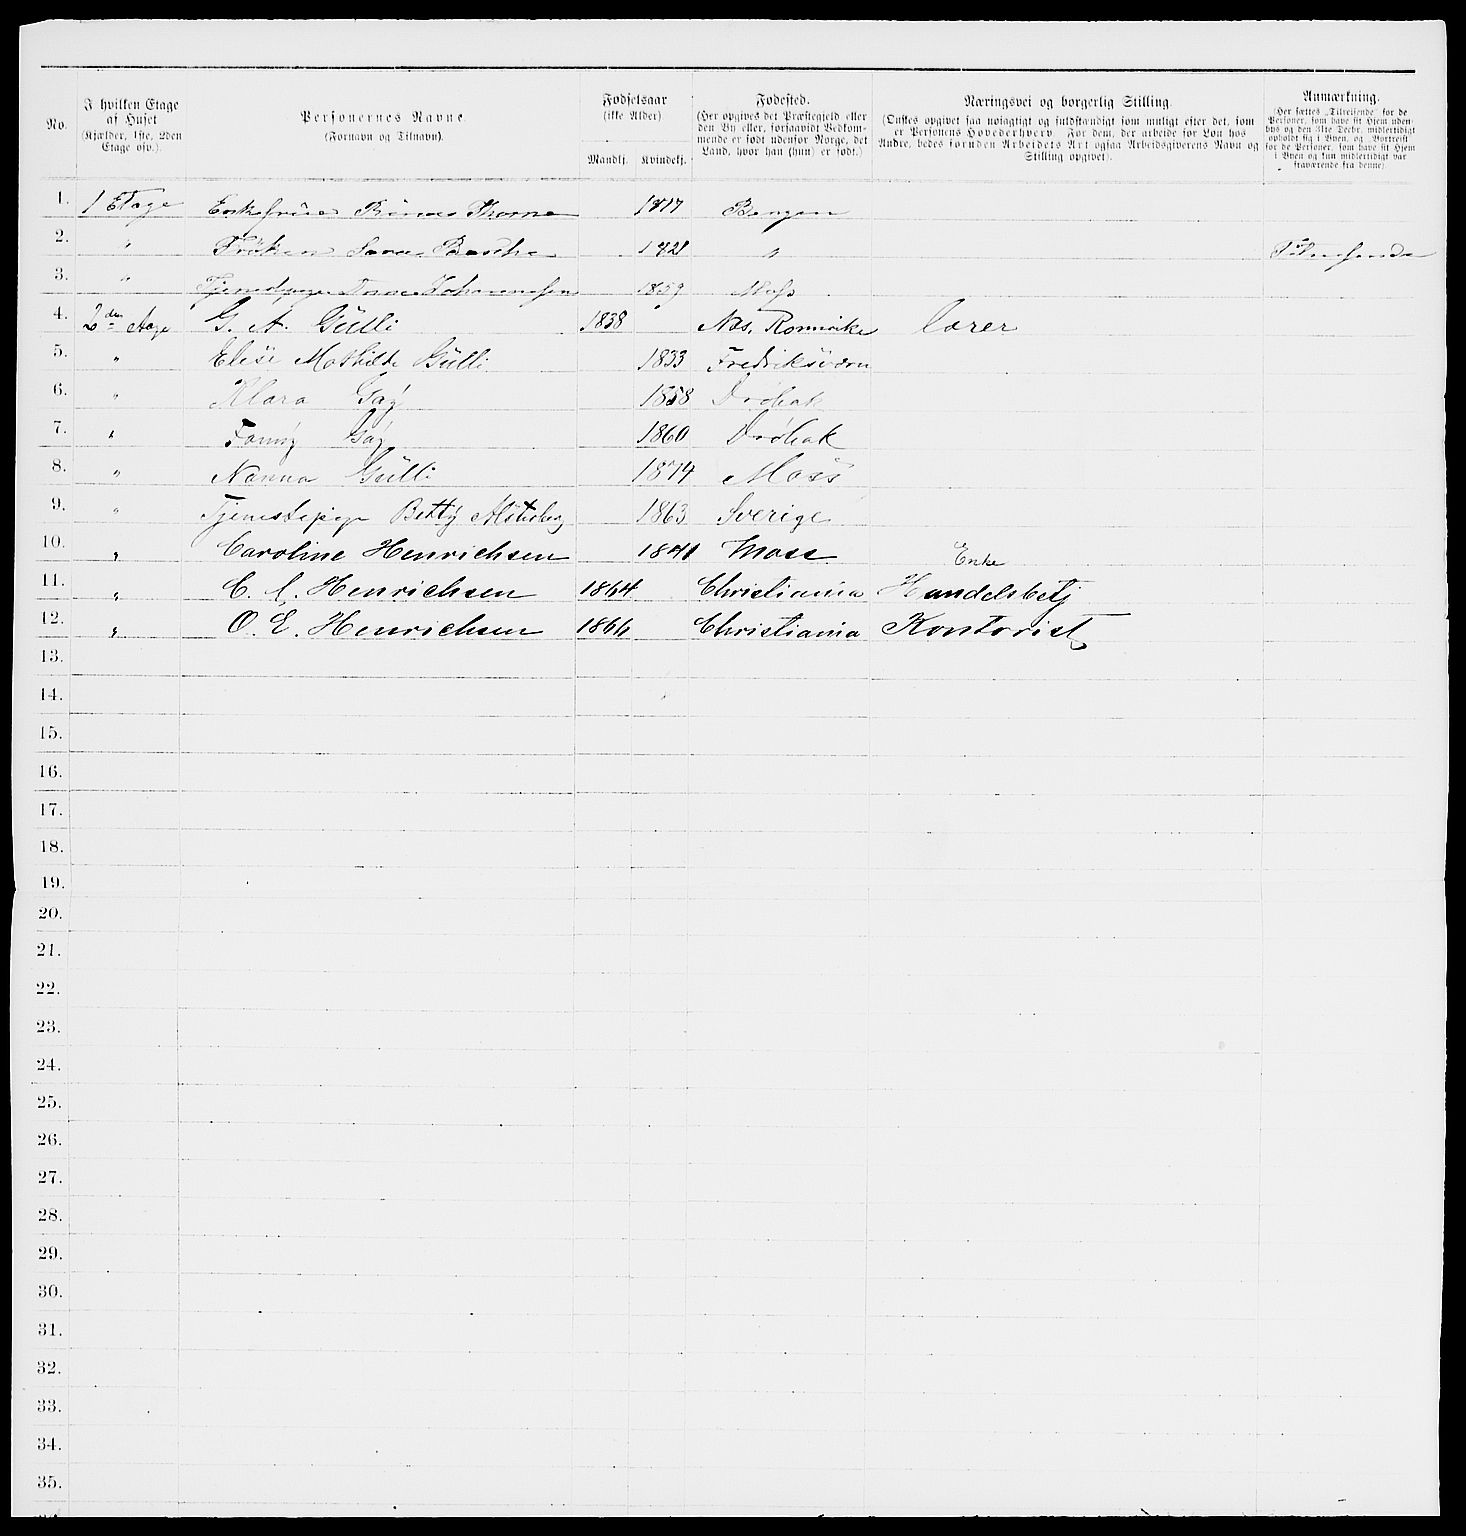 No.
I hvilken Etage
af Huset
(Kjælder, 1ste, 2den
Etage osv.).
Personernes Navne.
(Fornavn og Tilnavn).
Fødselsaar
(ikke Alder)
Mandkj. Kvindekj.
Fødested.
(Her opgives det Præstegjeld eller
den By eller, forsaavidt Vedkom-
mende er født udenfor Norge, det
Land, hvor han (hun) er født.)
Næringsvei og borgerlig Stilling.
(Ønskes opgivet saa nøiagtigt og fuldstændigt som muligt efter det, som
er Personens Hovederhverv. For dem, der arbeide for Løn hos
Andre, bedes foruden Arbeidets Art ogsaa Arbeidsgiverens Navn og
Stilling opgivet).
Anmærkning.
(Her sættes „Tilreisende" for de
Personer, som have sit Hjem uden-
bys og den 31te Decbr. midlertidigt
opholdt sig i Byen, og „Bortreist"
for de Personer, som have sit Hjem
i Byen og kun midlertidigt var
fraværende fra denne)
1. 1 Etage Enkefrue Thorne 1817 Bergen
2. " Frøken 1821 " Tilreisende
3. " Tjenestepige Johannesen 1859 Moss
4. 2den Etage G. A. Gülli 1838 Nes, Romerike lærer
5. " Elise Mathilde Gülli 1833 Fredriksværn
6. " Klara Gaÿ 1858 Drøbak
7. " Fannÿ Gaÿ 1860 Drøbak
8. " Nanna Gülli 1874 Moss
9. " Tjenestepige Bettÿ 1863 Sverige
10. " Caroline Henrichsen 1841 Moss Enke
11. " C. C. Henrichsen 1864 Christiania Handelsbetj
12. " O. E. Henrichsen 1866 Christiania Kontorist
13.
14.
15.
16.
17.
18.
19.
20.
21.
22.
23.
24.
25.
26.
27.
28.
29.
30.
31.
32.
33.
34.
35.